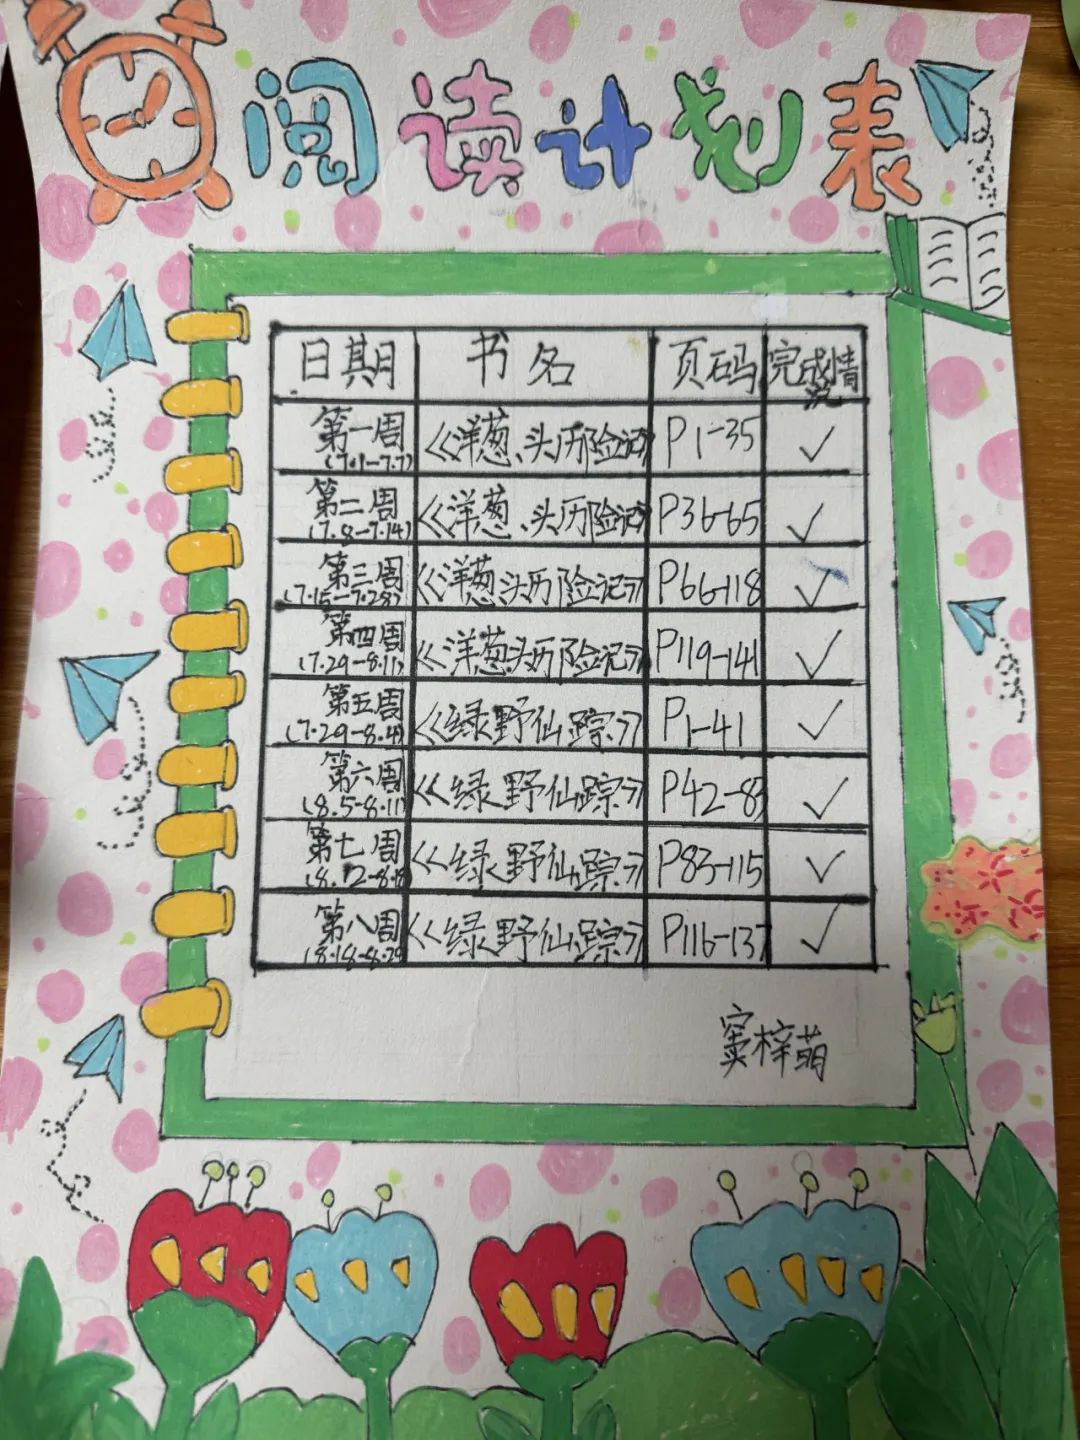 阅读计划表
日期 书名 页码 完成情况
第一周 《洋葱头历险记》 P1-35 ✓
(7.1-7.7)
第二周 《洋葱头历险记》 P36-65 ✓
(7.8-7.14)
第三周 《洋葱头历险记》 P66-118 ✓
(7.15-7.28)
第四周 《洋葱头历险记》 P119-141 ✓
(7.29-8.11)
第五周 《绿野仙踪》 P1-41 ✓
(7.29-8.4)
第六周 《绿野仙踪》 P42-83 ✓
(8.5-8.11)
第七周 《绿野仙踪》 P83-115 ✓
(8.12-8.18)
第八周 《绿野仙踪》 P116-137 ✓
窦梓萌